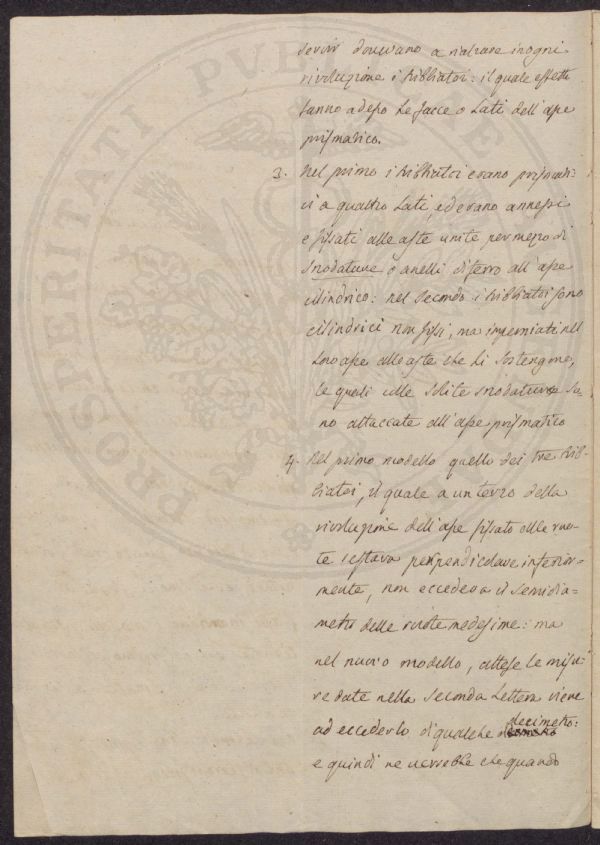 servir dovevano a rialzare in ogni
rivoluzione i tribbiatoi: il quale effetto
fanno adesso le facce o lati dell'asse
prismatico.
3. Nel primo i tribbiatoi erano prismati-
ci a quattro lati, ed erano annessi
e fissati alle aste unite per mezzo di
snodature o anelli di ferro all'asse
cilindrico: nel secondo i tribbiatoi sono
cilindrici non fissi, ma imperniati nel
loro asse alle aste che li sostengono,
le quali colle solite snodature so-
no attaccate all'asse prismatico
4. Nel primo modello quello dei tre trib-
biatoi, il quale a un terzo della
rivoluzione dell'asse fissato alle ruo-
te restava perpendicolare inferior-
mente, non eccedeva il semidia-
metro delle ruote medesime: ma
nel nuovo modello, attese le misu-
re date nella seconda Lettera viene
ad eccederlo di qualche decimetro:
e quindi ne verrebbe che quando
PROSPERITATI PVBLICAE